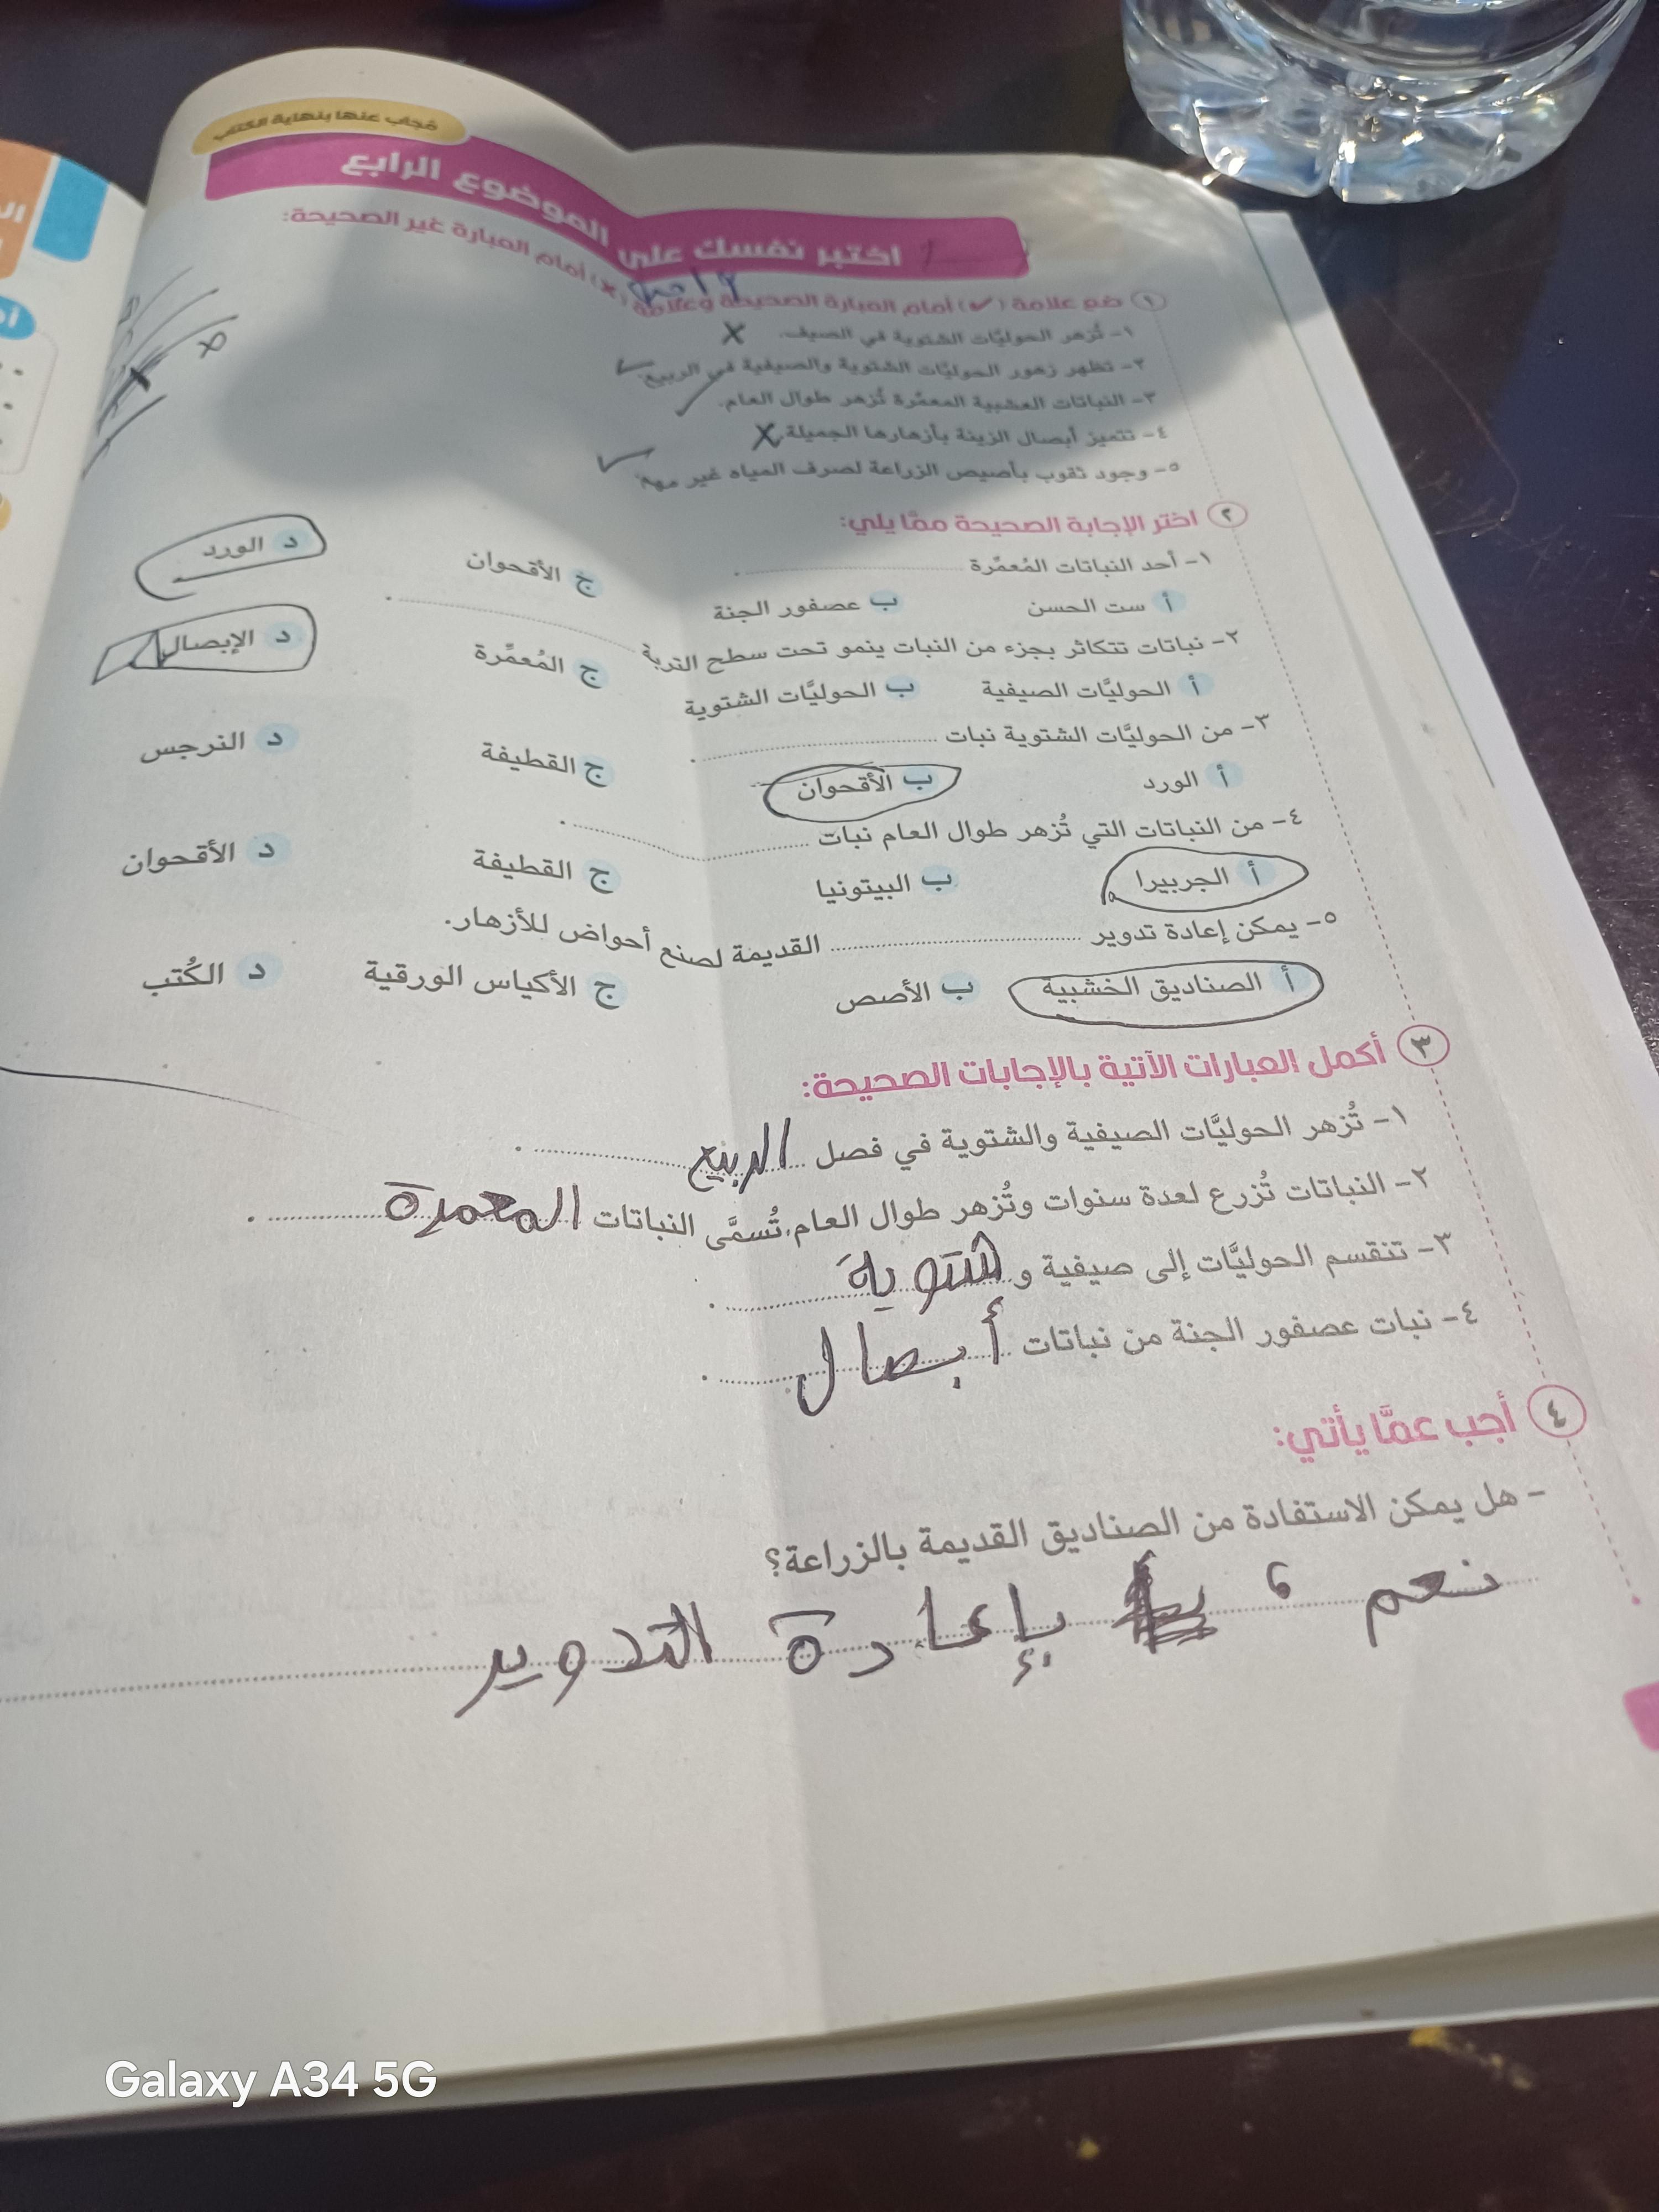 مُجاب عنها بنهاية الكتاب
اختبر نفسك على الموضوع الرابع
١ ضع علامة (✓) أمام العبارة الصحيحة وعلامة (✗) أمام العبارة غير الصحيحة:
١- تُزهر الحوليَّات الشتوية في الصيف. ✗
٢- تظهر زهور الحوليَّات الشتوية والصيفية في الربيع. ✓
٣- النباتات العشبية المعمَّرة تُزهر طوال العام. ✓
٤- تتميز أبصال الزينة بأزهارها الجميلة. ✗
٥- وجود ثقوب بأصيص الزراعة لصرف المياه غير مهم. ✓
٢ اختر الإجابة الصحيحة ممَّا يلي:
١- أحد النباتات المُعمَّرة
أ ست الحسن ب عصفور الجنة ج الأقحوان د الورد
٢- نباتات تتكاثر بجزء من النبات ينمو تحت سطح التربة
أ الحوليَّات الصيفية ب الحوليَّات الشتوية ج المُعمَّرة د الإبصال
٣- من الحوليَّات الشتوية نبات
أ الورد ب الأقحوان ج القطيفة د النرجس
٤- من النباتات التي تُزهر طوال العام نبات
أ الجربيرا ب البيتونيا ج القطيفة د الأقحوان
٥- يمكن إعادة تدوير القديمة لصنع أحواض للأزهار.
أ الصناديق الخشبية ب الأصص ج الأكياس الورقية د الكُتب
٣ أكمل العبارات الآتية بالإجابات الصحيحة:
١- تُزهر الحوليَّات الصيفية والشتوية في فصل الربيع
٢- النباتات تُزرع لعدة سنوات وتُزهر طوال العام، تُسمَّى النباتات المعمرة
٣- تنقسم الحوليَّات إلى صيفية و شتوية
٤- نبات عصفور الجنة من نباتات أبصال
٤ أجب عمَّا يأتي:
- هل يمكن الاستفادة من الصناديق القديمة بالزراعة؟
نعم ، بإعادة التدوير
Galaxy A34 5G